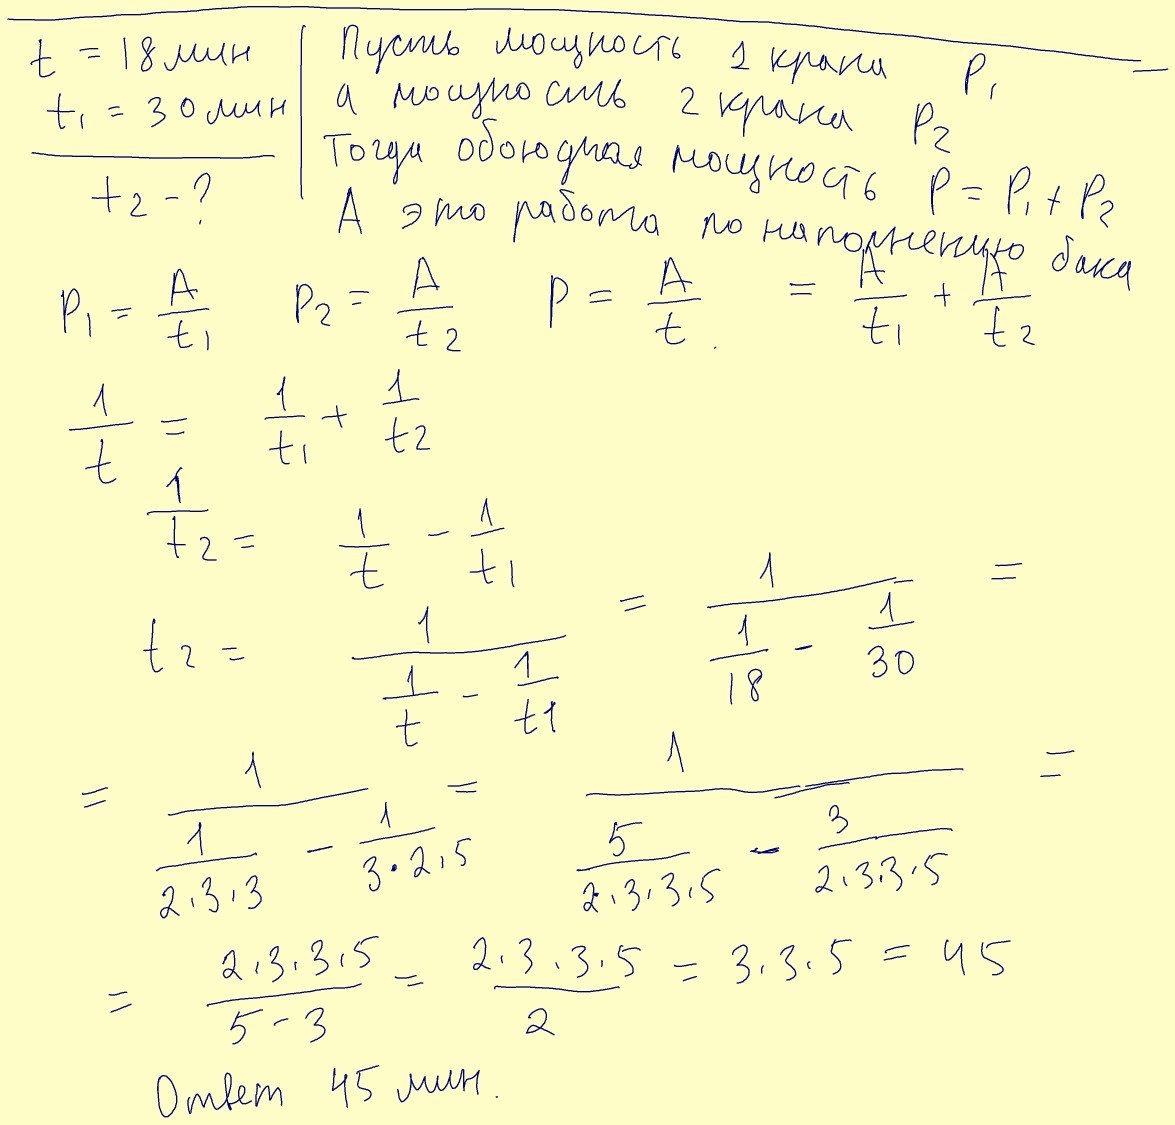 t = 18 мин
t₁ = 30 мин
t₂ - ?
Пусть мощность 1 крана P₁
а мощность 2 крана P₂
Тогда обоюдная мощность P = P₁ + P₂
A это работа по наполнению бака
P₁ = A/t₁ P₂ = A/t₂ P = A/t. = A/t₁ + A/t₂
1/t = 1/t₁ + 1/t₂
1/t₂ = 1/t - 1/t₁
t₂ = 1/(1/t - 1/t1) = 1/(1/18 - 1/30) =
= 1/(1/(2·3·3) - 1/(3·2·5)) = 1/(5/(2·3·3·5) - 3/(2·3·3·5)) =
= (2·3·3·5)/(5-3) = (2·3·3·5)/2 = 3·3·5 = 45
Ответ 45 мин.